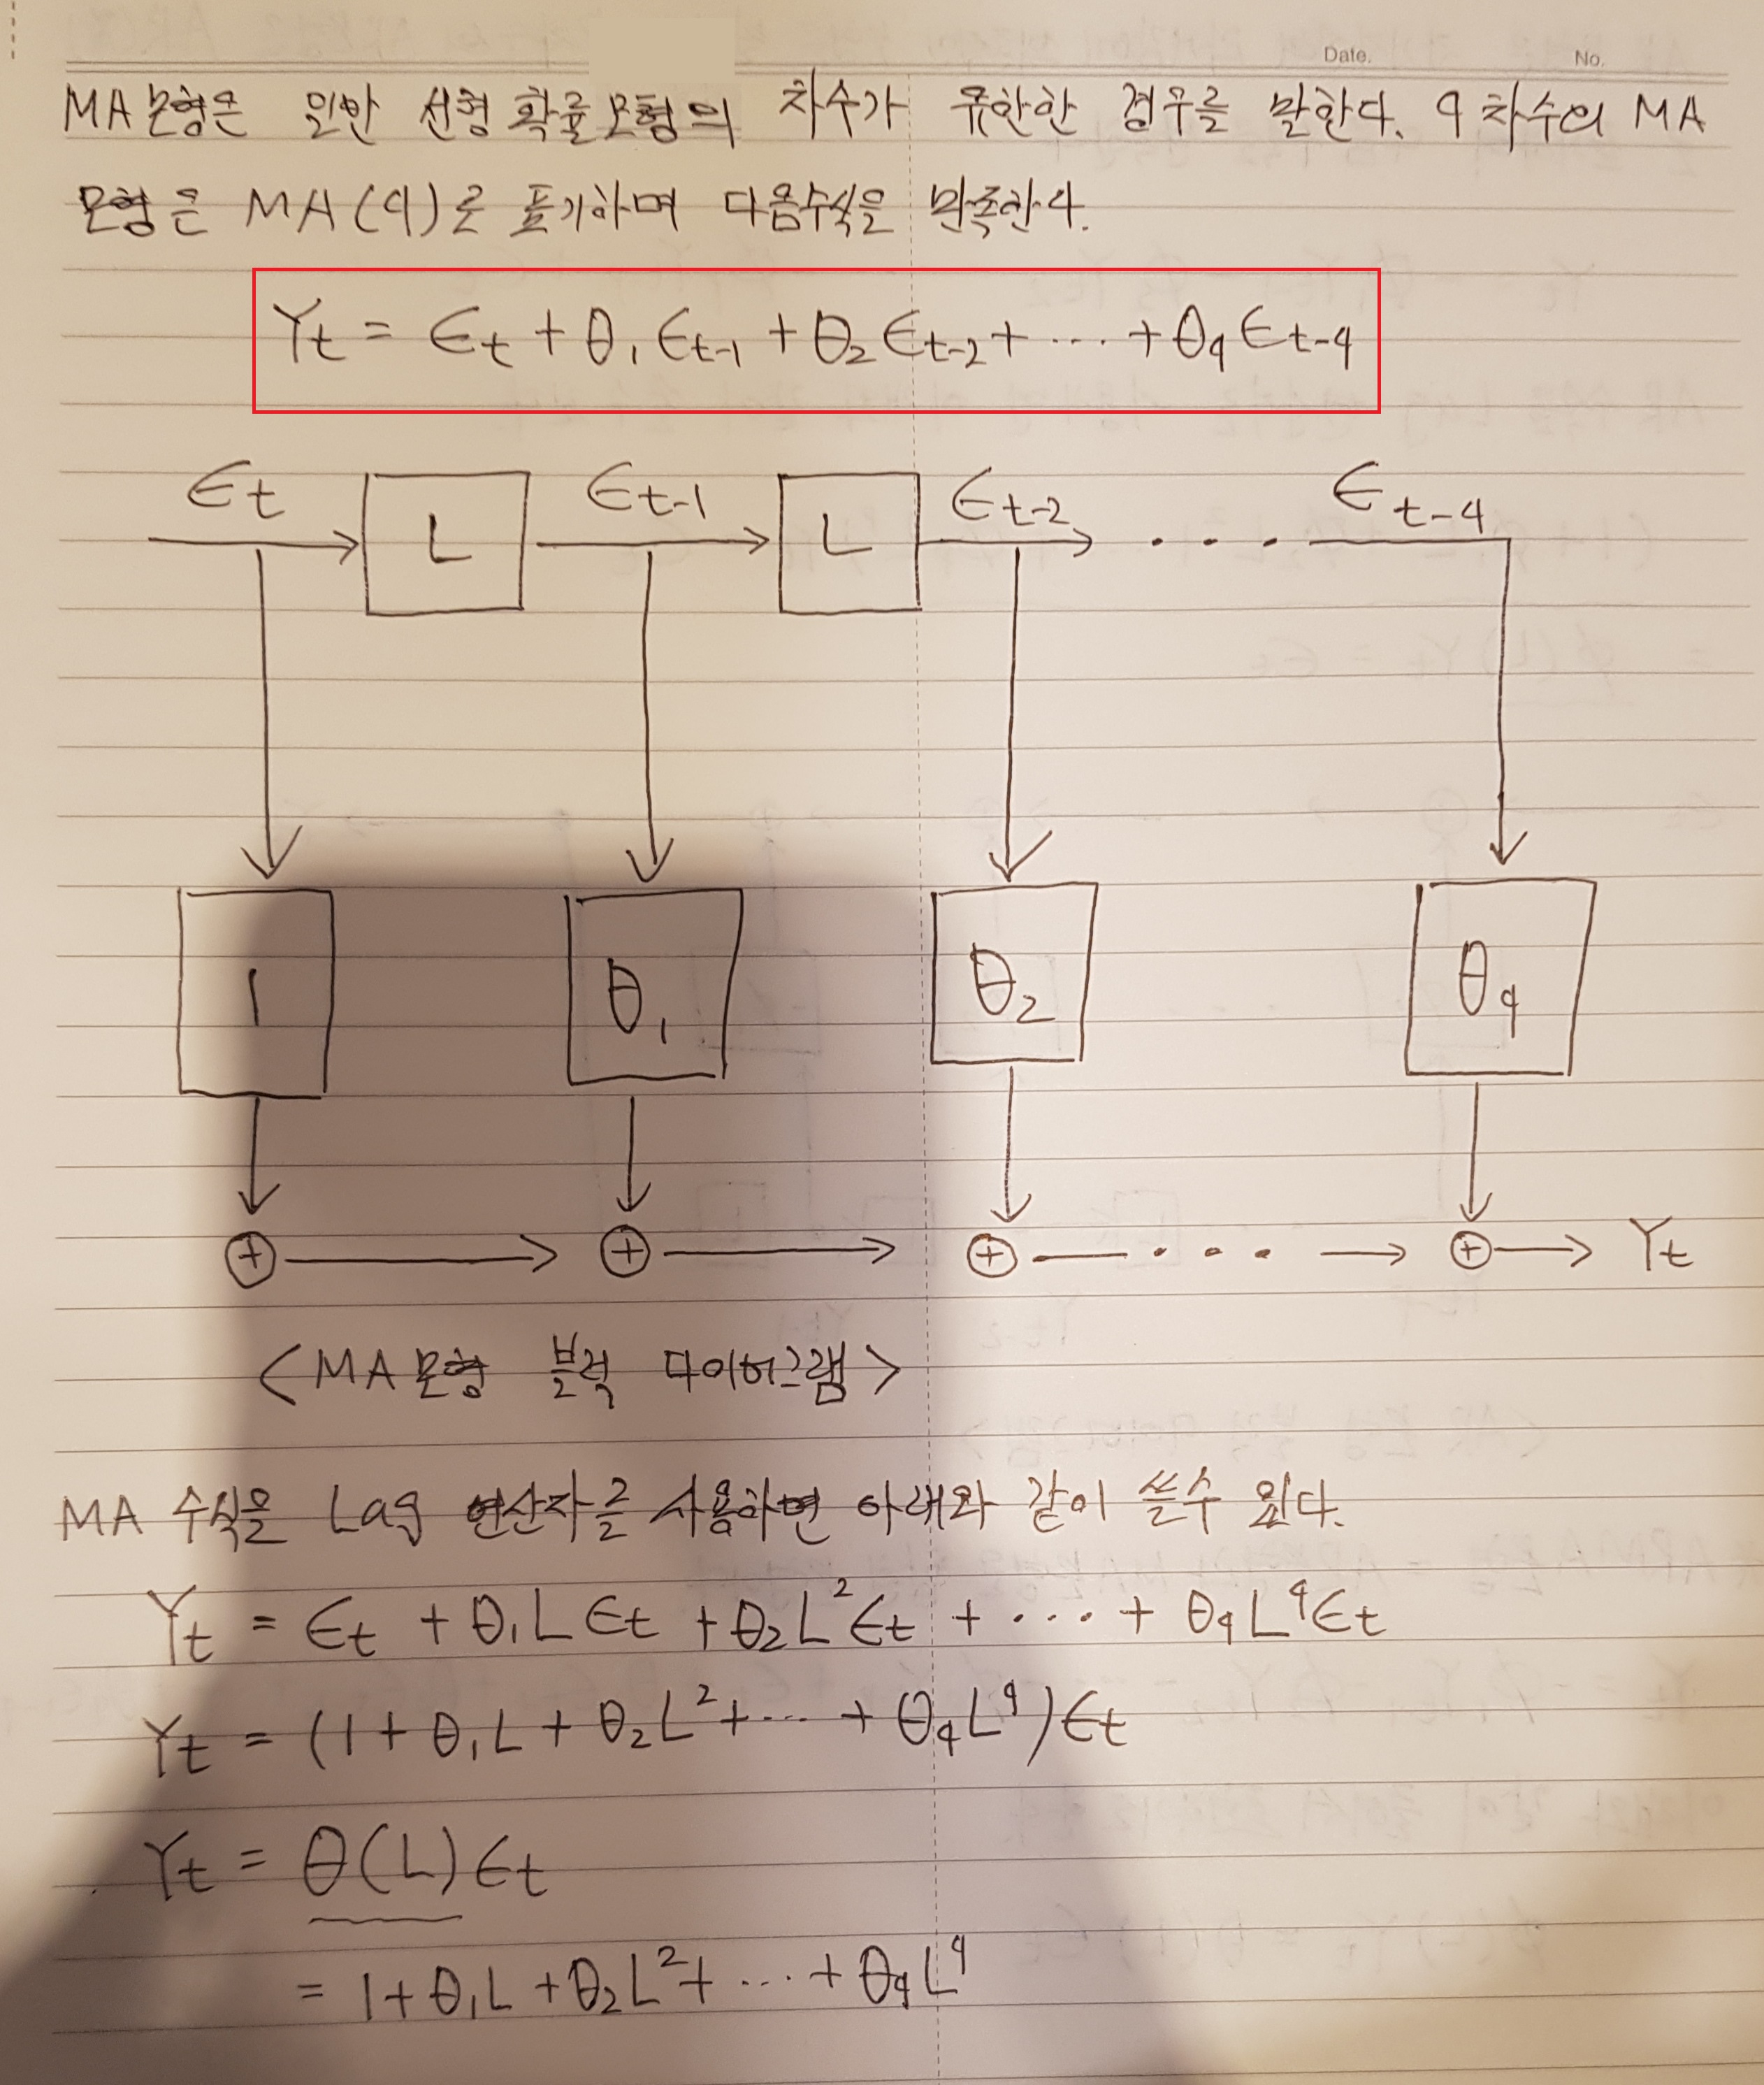 Date.
No.
MA모형은 일반 선형 확률모형의 차수가 유한한 경우를 말한다. q 차수의 MA
모형은 MA(q)로 표기하며 다음수식을 만족한다.
Yt = ϵt + θ1ϵt-1 + θ2ϵt-2 + ... + θqϵt-q
ϵt L ϵt-1 L ϵt-2 ... ϵt-q
1 θ1 θ2 θq
⊕ → ⊕ → ⊕ — ... → ⊕ → Yt
<MA모형 블럭 다이어그램>
MA 수식을 Lag 연산자를 사용하면 아래와 같이 쓸수 있다.
Yt = ϵt + θ1Lϵt + θ2L²ϵt + ... + θqL^qϵt
Yt = (1 + θ1L + θ2L² + ... + θqL^q)ϵt
Yt = θ(L)ϵt
= 1 + θ1L + θ2L² + ... + θqL^q